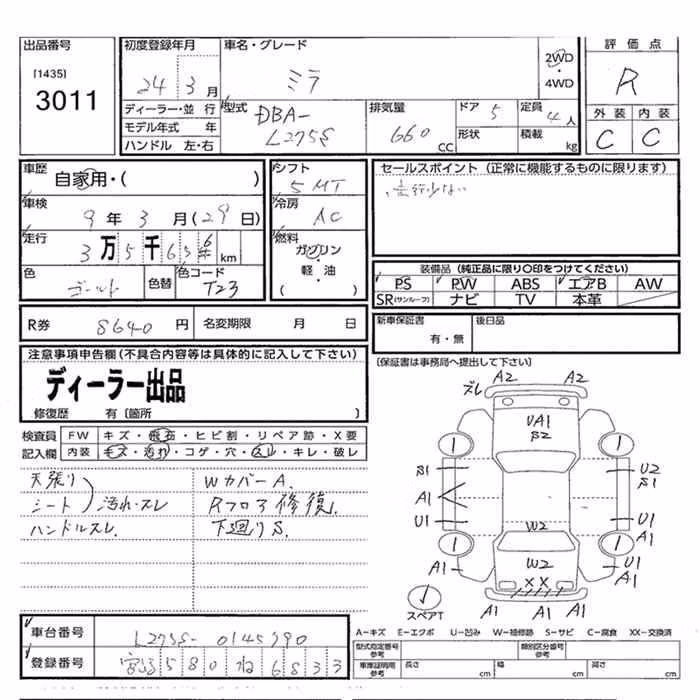 出品番号
[1435]
3011
初度登録年月
24 3月
ディーラー・並 行
モデル年式 年
ハンドル 左・右
車名・グレード
ミラ
2WD
・
4WD
型式
DBA-
L275S
排気量
660 CC
ドア 5
形状
定員 4人
積載 kg
評価点
R
外装 内装
C C
車歴
自家用・( )
車検
9年 3月(29日)
走行
3万5千65 km
色
ゴールド
色替
色コード
T23
シフト
5MT
冷房
AC
燃料
ガソリン
・
軽・油
( )
セールスポイント(正常に機能するものに限ります)
走行少ない
装備品(純正品に限り○印をつけてください)
PS PW ABS エアB AW
SR(サンルーフ) ナビ TV 本革
R券 8640円 名変期限 月 日
新車保証書 後日品
有・無
[保証書は事務局へ提出して下さい]
注意事項申告欄(不具合内容等は具体的に記入して下さい)
ディーラー出品
修復歴 有[箇所 ]
検査員 FW キズ・飛石・ヒビ割・リペア跡・X要
記入欄 内装 キズ・汚れ・コゲ・穴・スレ・キレ・破レ
天張り
シート 汚れ・スレ
ハンドルスレ.
WカバーA.
Rフロア修復.
下廻りS.
ズレ A2 A2
UA1
B2
1 1
B1 U2
B1
A1
U1 W2 U1
A1
1 1
A1 W2 U1
A1
XX
スペアT
A1 A1 A1
A-キズ E-エクボ U-凹み W-補修跡 S-サビ C-腐食 XX-交換済
車台番号 L275S-0145990
登録番号 宮崎580ね6833
型式指定番号
参考
類別区分番号
参考
車庫証明用
参考
長さ cm
幅 cm
高さ cm